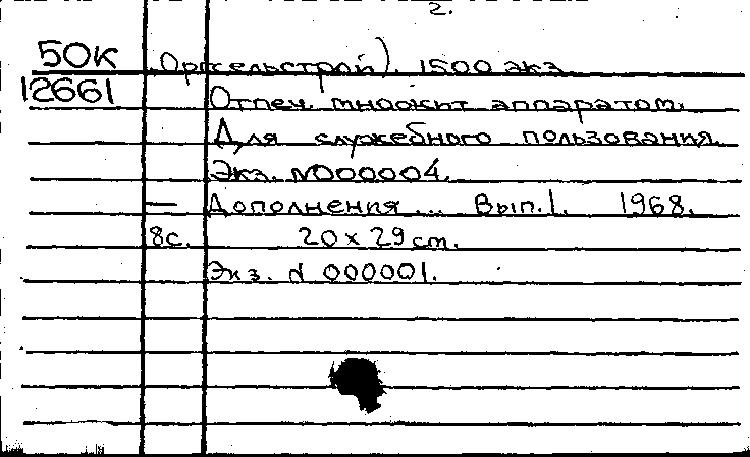 2.
50к Оргсельстрой). 1500 экз
12661 Отпеч. множит аппаратом.
Для служебного пользования.
Экз. №000004.
— Дополнения... Вып.1. 1968.
8с. 20 x 29 cm.
Экз. № 000001.